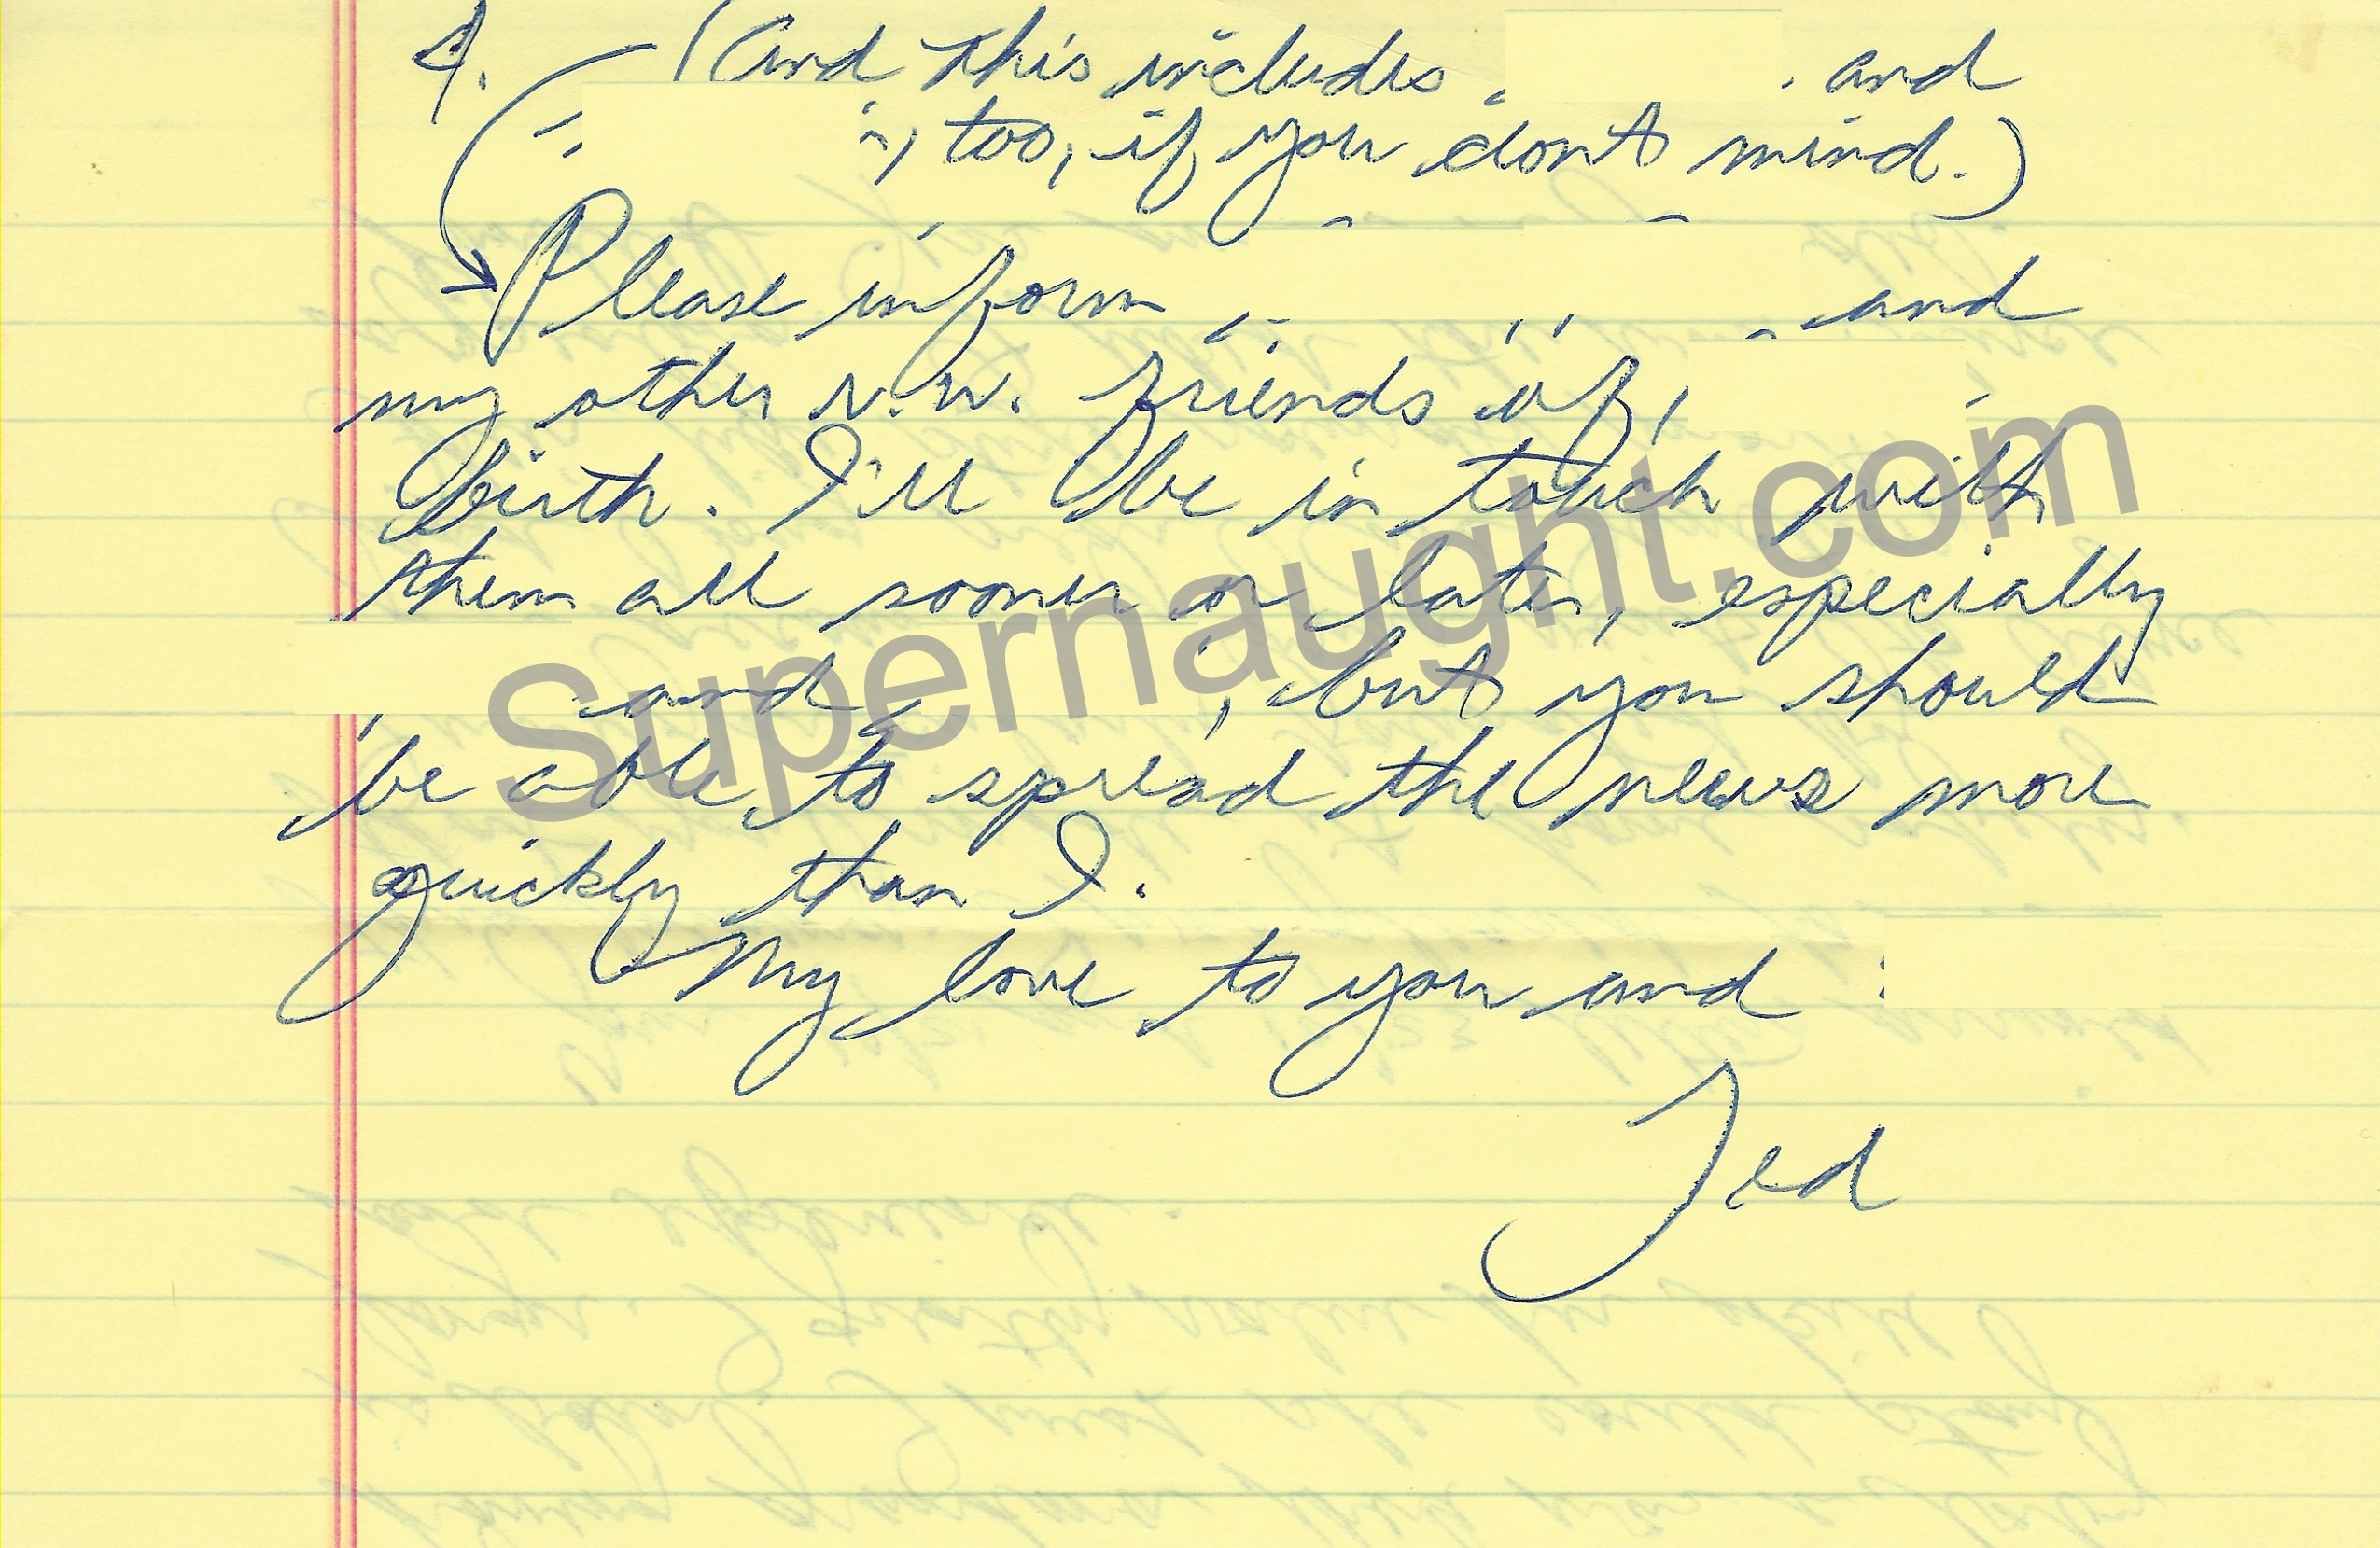 4. (and this includes and
, too, if you don't mind.)
Please inform and
my other n.w. friends of
birth. I'll be in touch with
them all sooner or later, especially
and , but you should
be able to spread the news more
quickly than I.
My love to you and
Ted
Supernaught.com